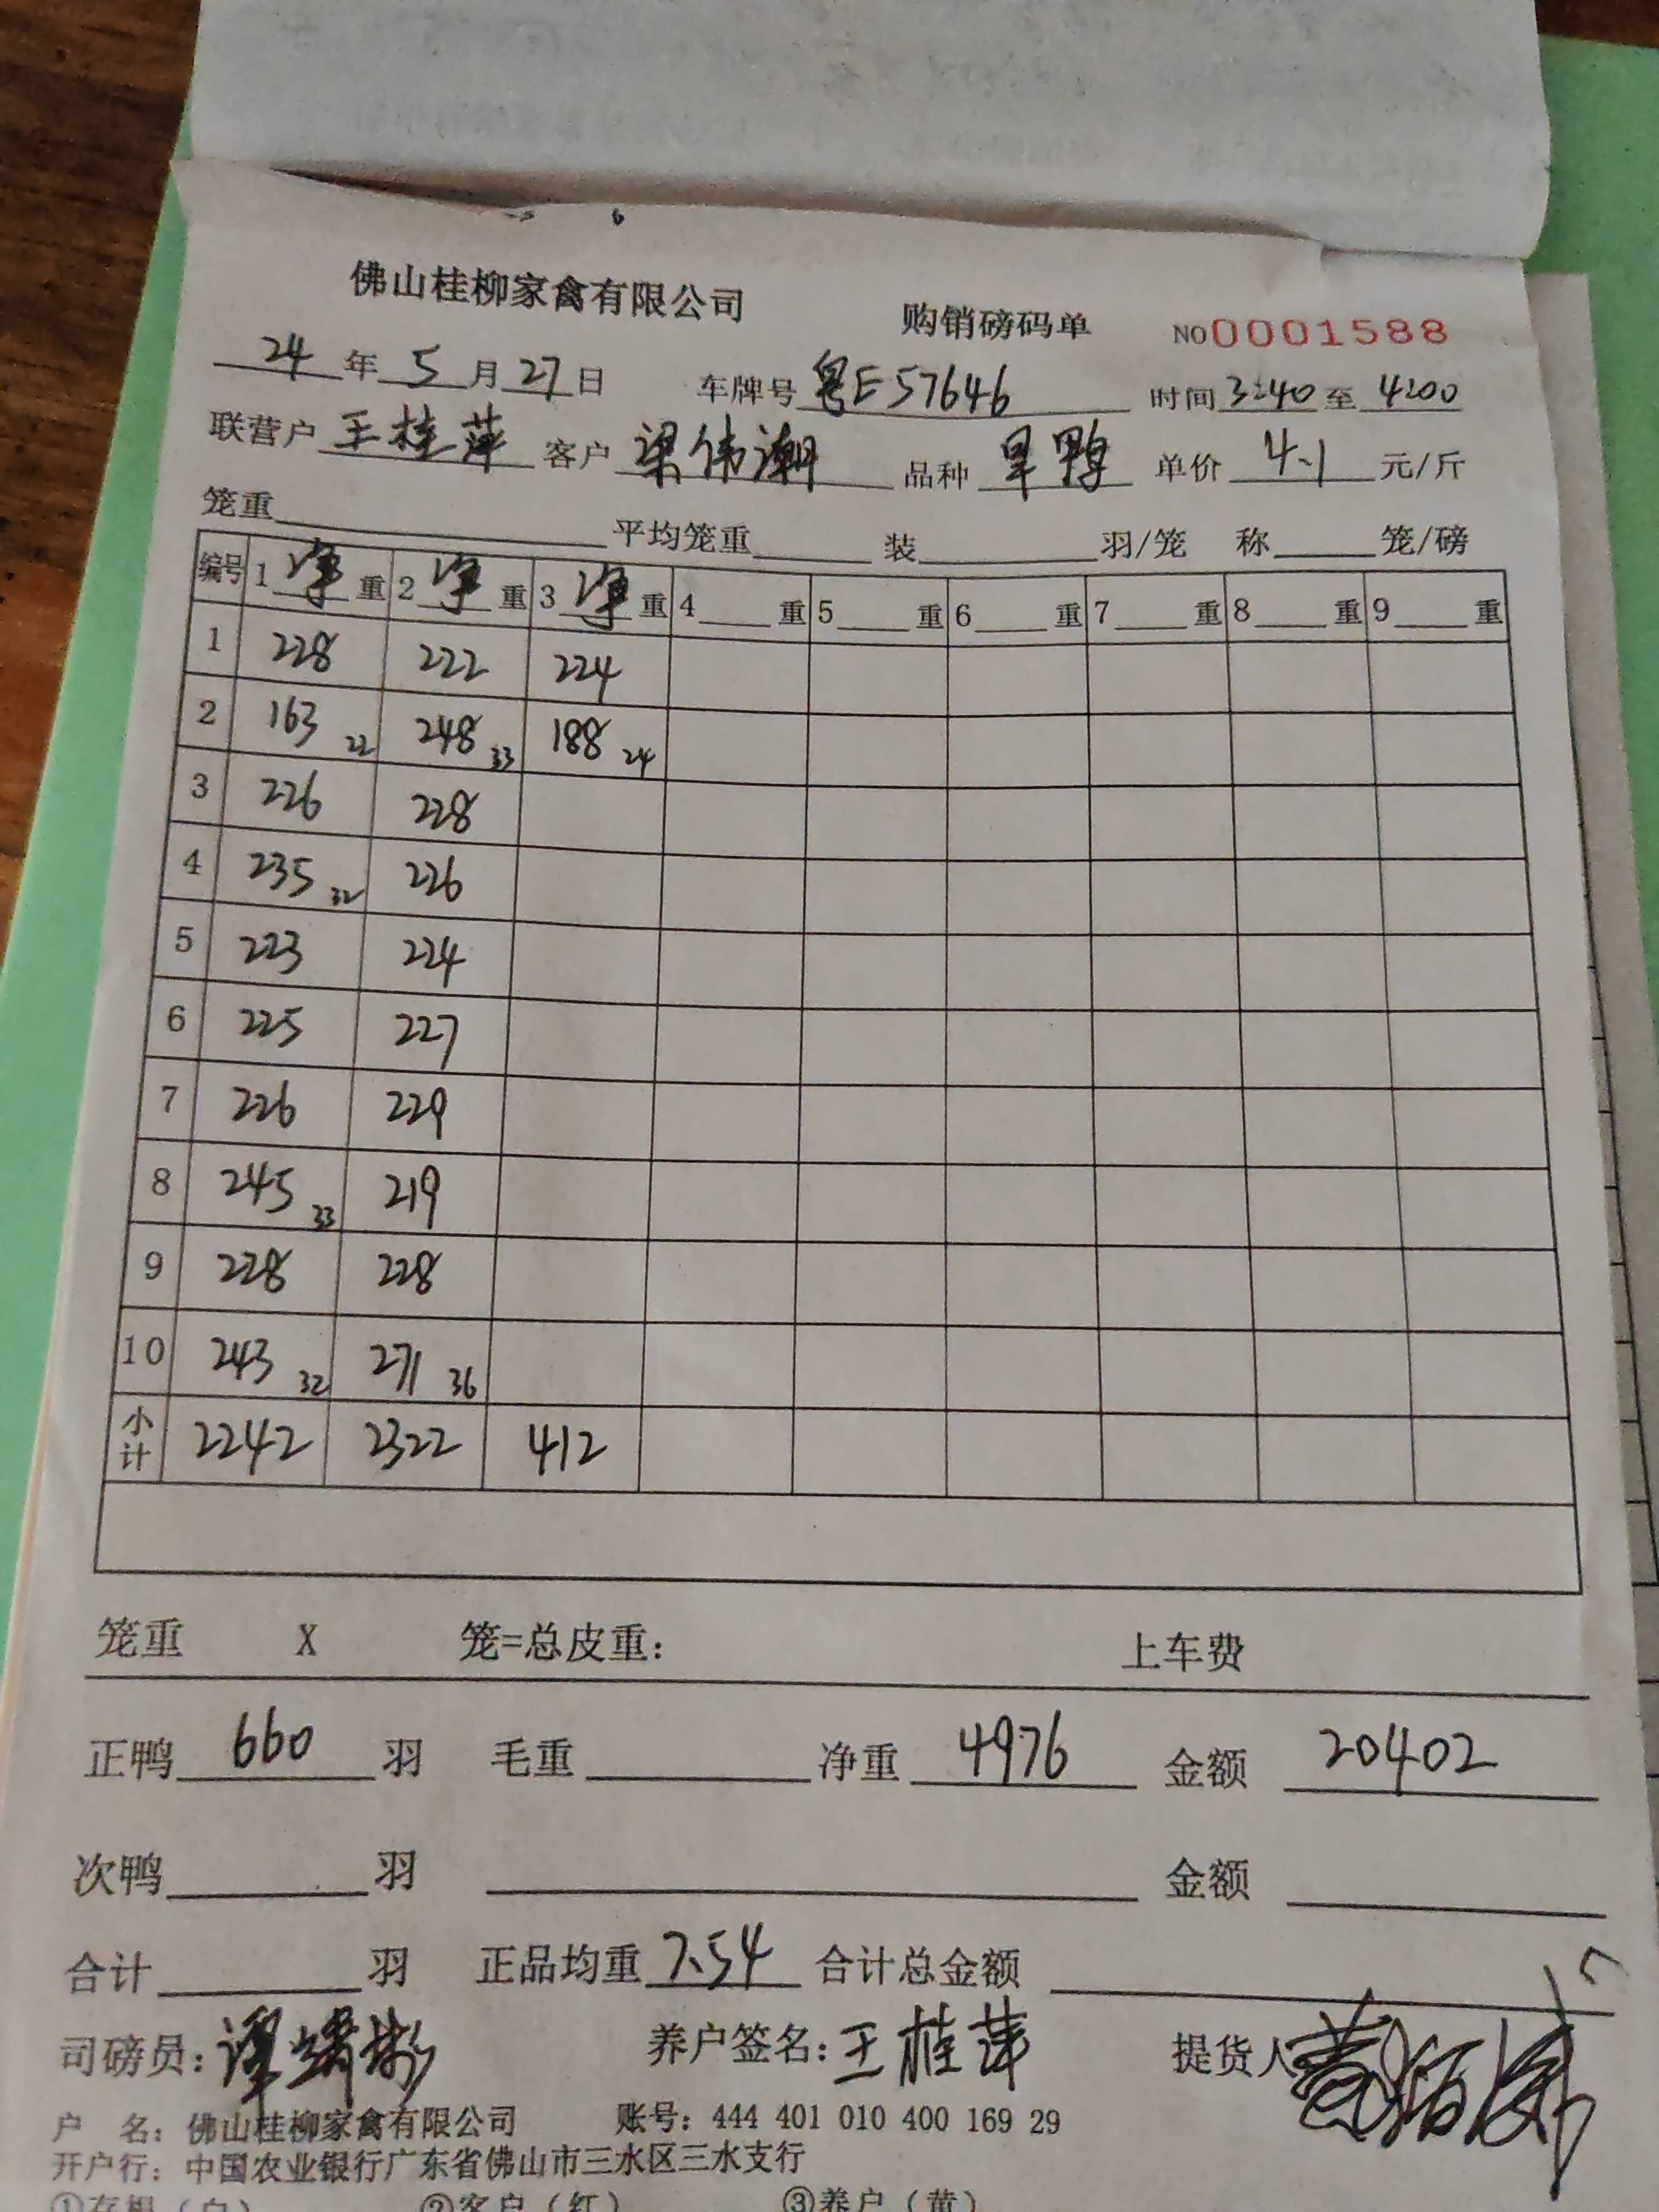 佛山桂柳家禽有限公司 购销磅码单 NO0001588
24年5月27日 车牌号 粤E57646 时间 3:40 至 4:00
联营户 王桂萍 客户 梁伟潮 品种 旱鸭 单价 4.1 元/斤
笼重 平均笼重 装 羽/笼 称 笼/磅
编号 1 净 重 2 净 重 3 净 重 4 重 5 重 6 重 7 重 8 重 9 重
1 228 222 224
2 163 22 248 33 188 24
3 226 228
4 235 32 226
5 223 224
6 225 227
7 226 229
8 245 33 219
9 228 228
10 243 32 271 36
小计 2242 2322 412
笼重 X 笼=总皮重: 上车费
正鸭 660 羽 毛重 净重 4976 金额 20402
次鸭 羽 金额
合计 羽 正品均重 7.54 合计总金额
司磅员: 养户签名: 王桂萍 提货人
户 名: 佛山桂柳家禽有限公司 账号: 444 401 010 400 169 29
开户行: 中国农业银行广东省佛山市三水区三水支行
①存根(白) ②客户(红) ③养户(黄)